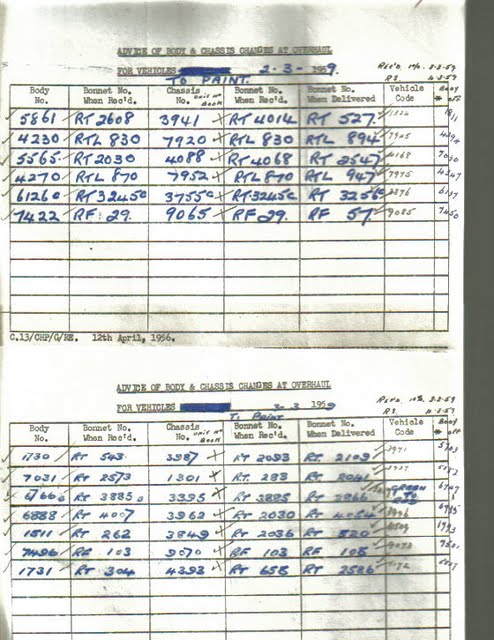 ADVICE OF BODY & CHASSIS CHANGES AT OVERHAUL
FOR VEHICLES 2-3-1959. Rec'd
TO PAINT.
Body No. Bonnet No. When Rec'd. Chassis No. Unit No Book Bonnet No. When Rec'd. Bonnet No. When Delivered Vehicle Code Body off
5861 RT 2608 3941 RT 4014 RT 527 1811
4230 RTL 830 7920 RTL 830 RTL 894
5565 RT 2030 4088 RT 4068 RT 2547 4168
4270 RTL 870 7952 RTL 870 RTL 947 7975 4247
6126o RT 3245o 3755o RT 3245o RT 3256 3376 6137
7422 RF 29. 9065 RF 29. RF 57 9085 7450
C.13/CHP/G/RE. 12th April, 1956.
ADVICE OF BODY & CHASSIS CHANGES AT OVERHAUL
FOR VEHICLES 2-3-1959 Rec'd
To PAINT
Body No. Bonnet No. When Rec'd. Chassis No. Unit No Book Bonnet No. When Rec'd. Bonnet No. When Delivered Vehicle Code Body off
1730 RT 543 3987 RT 2093 RT 2103 3971
7031 RT 2573 1301 RT 283 RT 2041
RT 3885o 3395 RT 3885 RT 3866 GREEN TO
6888 RT 4007 3962 RT 2030 RT 4054
1811 RT 262 3849 RT 2036 RT 520
7496 RF 103 9070 RF 103 RF 108 9073
1731 RT 304 4393 RT 658 RT 2586